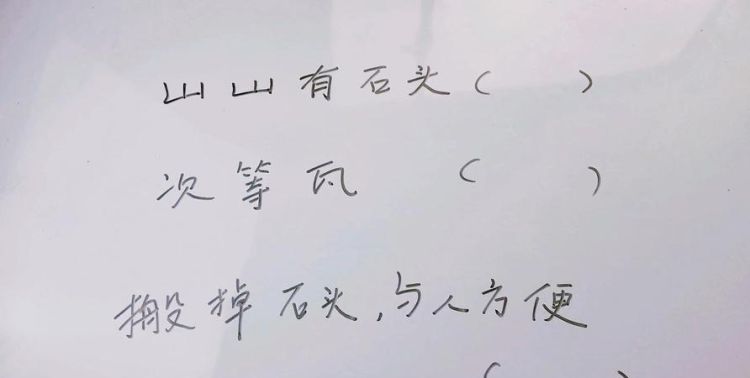 山山有石头（　　）
次等瓦　　（　　）
搬掉石头,与人方便
（　　）